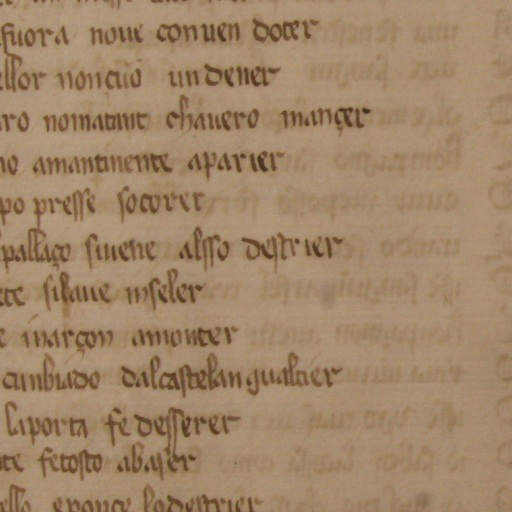 fuora noue conuen doter
ellor non cuo un dener
ro nomatant chauero mançer
no amantinente aparier
po presse socorer
pallaço sinene alsso destrier
te silaue inseler
e inarçon amonter
cunbiado dal castelan gualtier
laporta fe desserer
te fetosto abaser
esso eponte lo destrier